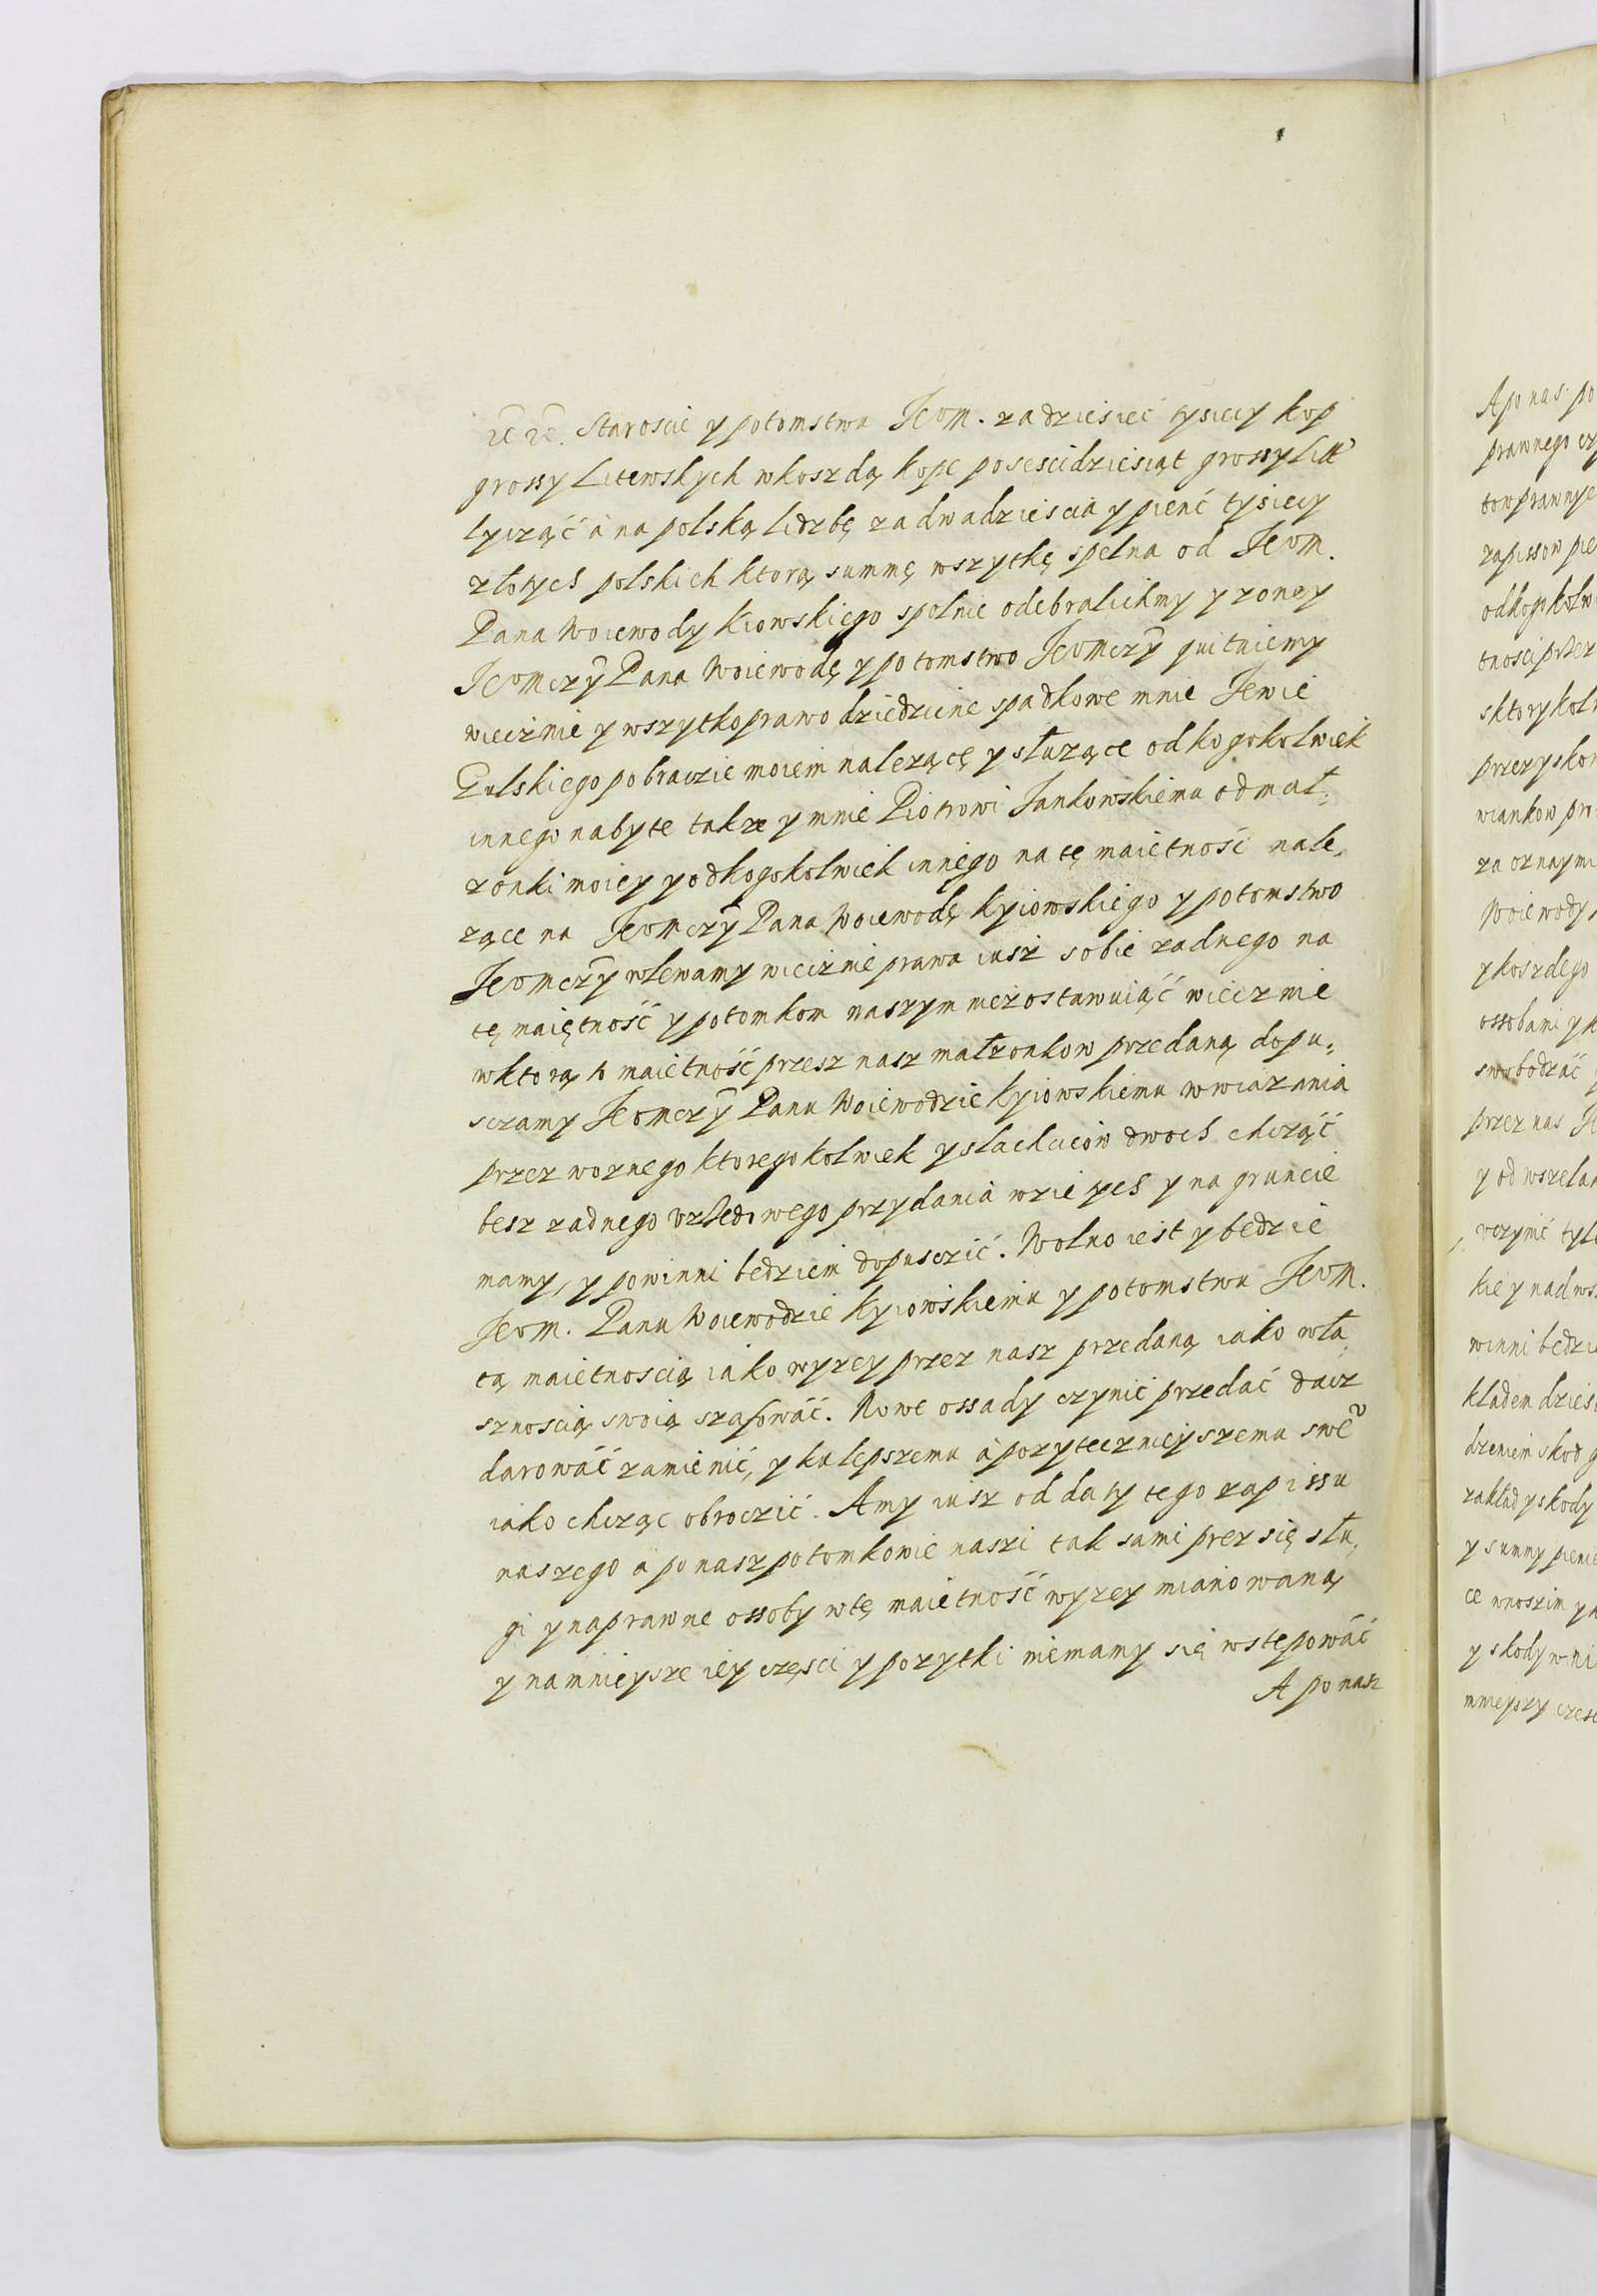 etc etc. Staroscie y potomstwu Jeom. za dziesieć tysiecy kop
grossy Litewskych wkoszdą kope po sescidziesiąt grossy Litt
lycząć à na polską lidzbę za dwadziescia y pienć tysiecy
złotych polskich ktorą summę wszytkę spelna od Jeom.
Pana Woiewody Kiowskiego spolnie odebralichmy y zoney
Jeomczy Pana Woiewodę y potomstwo Jeomczy quituiemy
wiecznie y wszytko prawo dziedzicne spadkowe mnie Jewie
Pulskiego po braczie moiem nalezące y słuzące od kogokolwiek
innego nabyte takze y mnie Piotrowi Jankowskiemu od mał,
zonki moiey y od kogokolwiek innego na tę maietność nale,
zące na Jeomczy Pana Woiewodę Kyiowskiego y potomstwo
Jeomczy wlewamy wiecznie prawa iusz sobie zadnego na
tę maiętność y potomkom naszym niezostawuiąć wiecznie
w ktorą to maietność przesz nasz małzonkow przedaną dopu,
sczamy Jeomczy Panu Woiewodzie Kyiowskiemu wwiazania
przez woznego ktoregokolwiek y slachcicow dwoch chcząć
besz zadnego vrzedowego przydania wzie tych y na gruncie
mamy, y powinni bedziem dopusczić. Wolno iest y bedzie
Jeom. Panu Woiewodzie Kyiowskiemu y potomstwu Jeom.
tą maietnoscią iako wyzey przez nasz przedaną iako wła,
sznoscią swoią szafować. Nowe ossady czynić przedać dacz
darować zamienić, y ku lepszemu à pozyteczniejszemu swe
iako chcząc obroczić. A my iusz od daty tego zapissu
naszego à po nasz potomkowie naszi tak sami prez się słu,
gi y naprawne ossoby wtę maietność wyzey mianowaną
y namnieysze iey częsci y pozytki niemamy się wstepować
A po nasz
A po nas po
prawnego
zapissow
tnosci przez
Woiewody
y koszdego
ossobami
przez nas
uczynić
kładem
zakład y skody
y summy
y skody